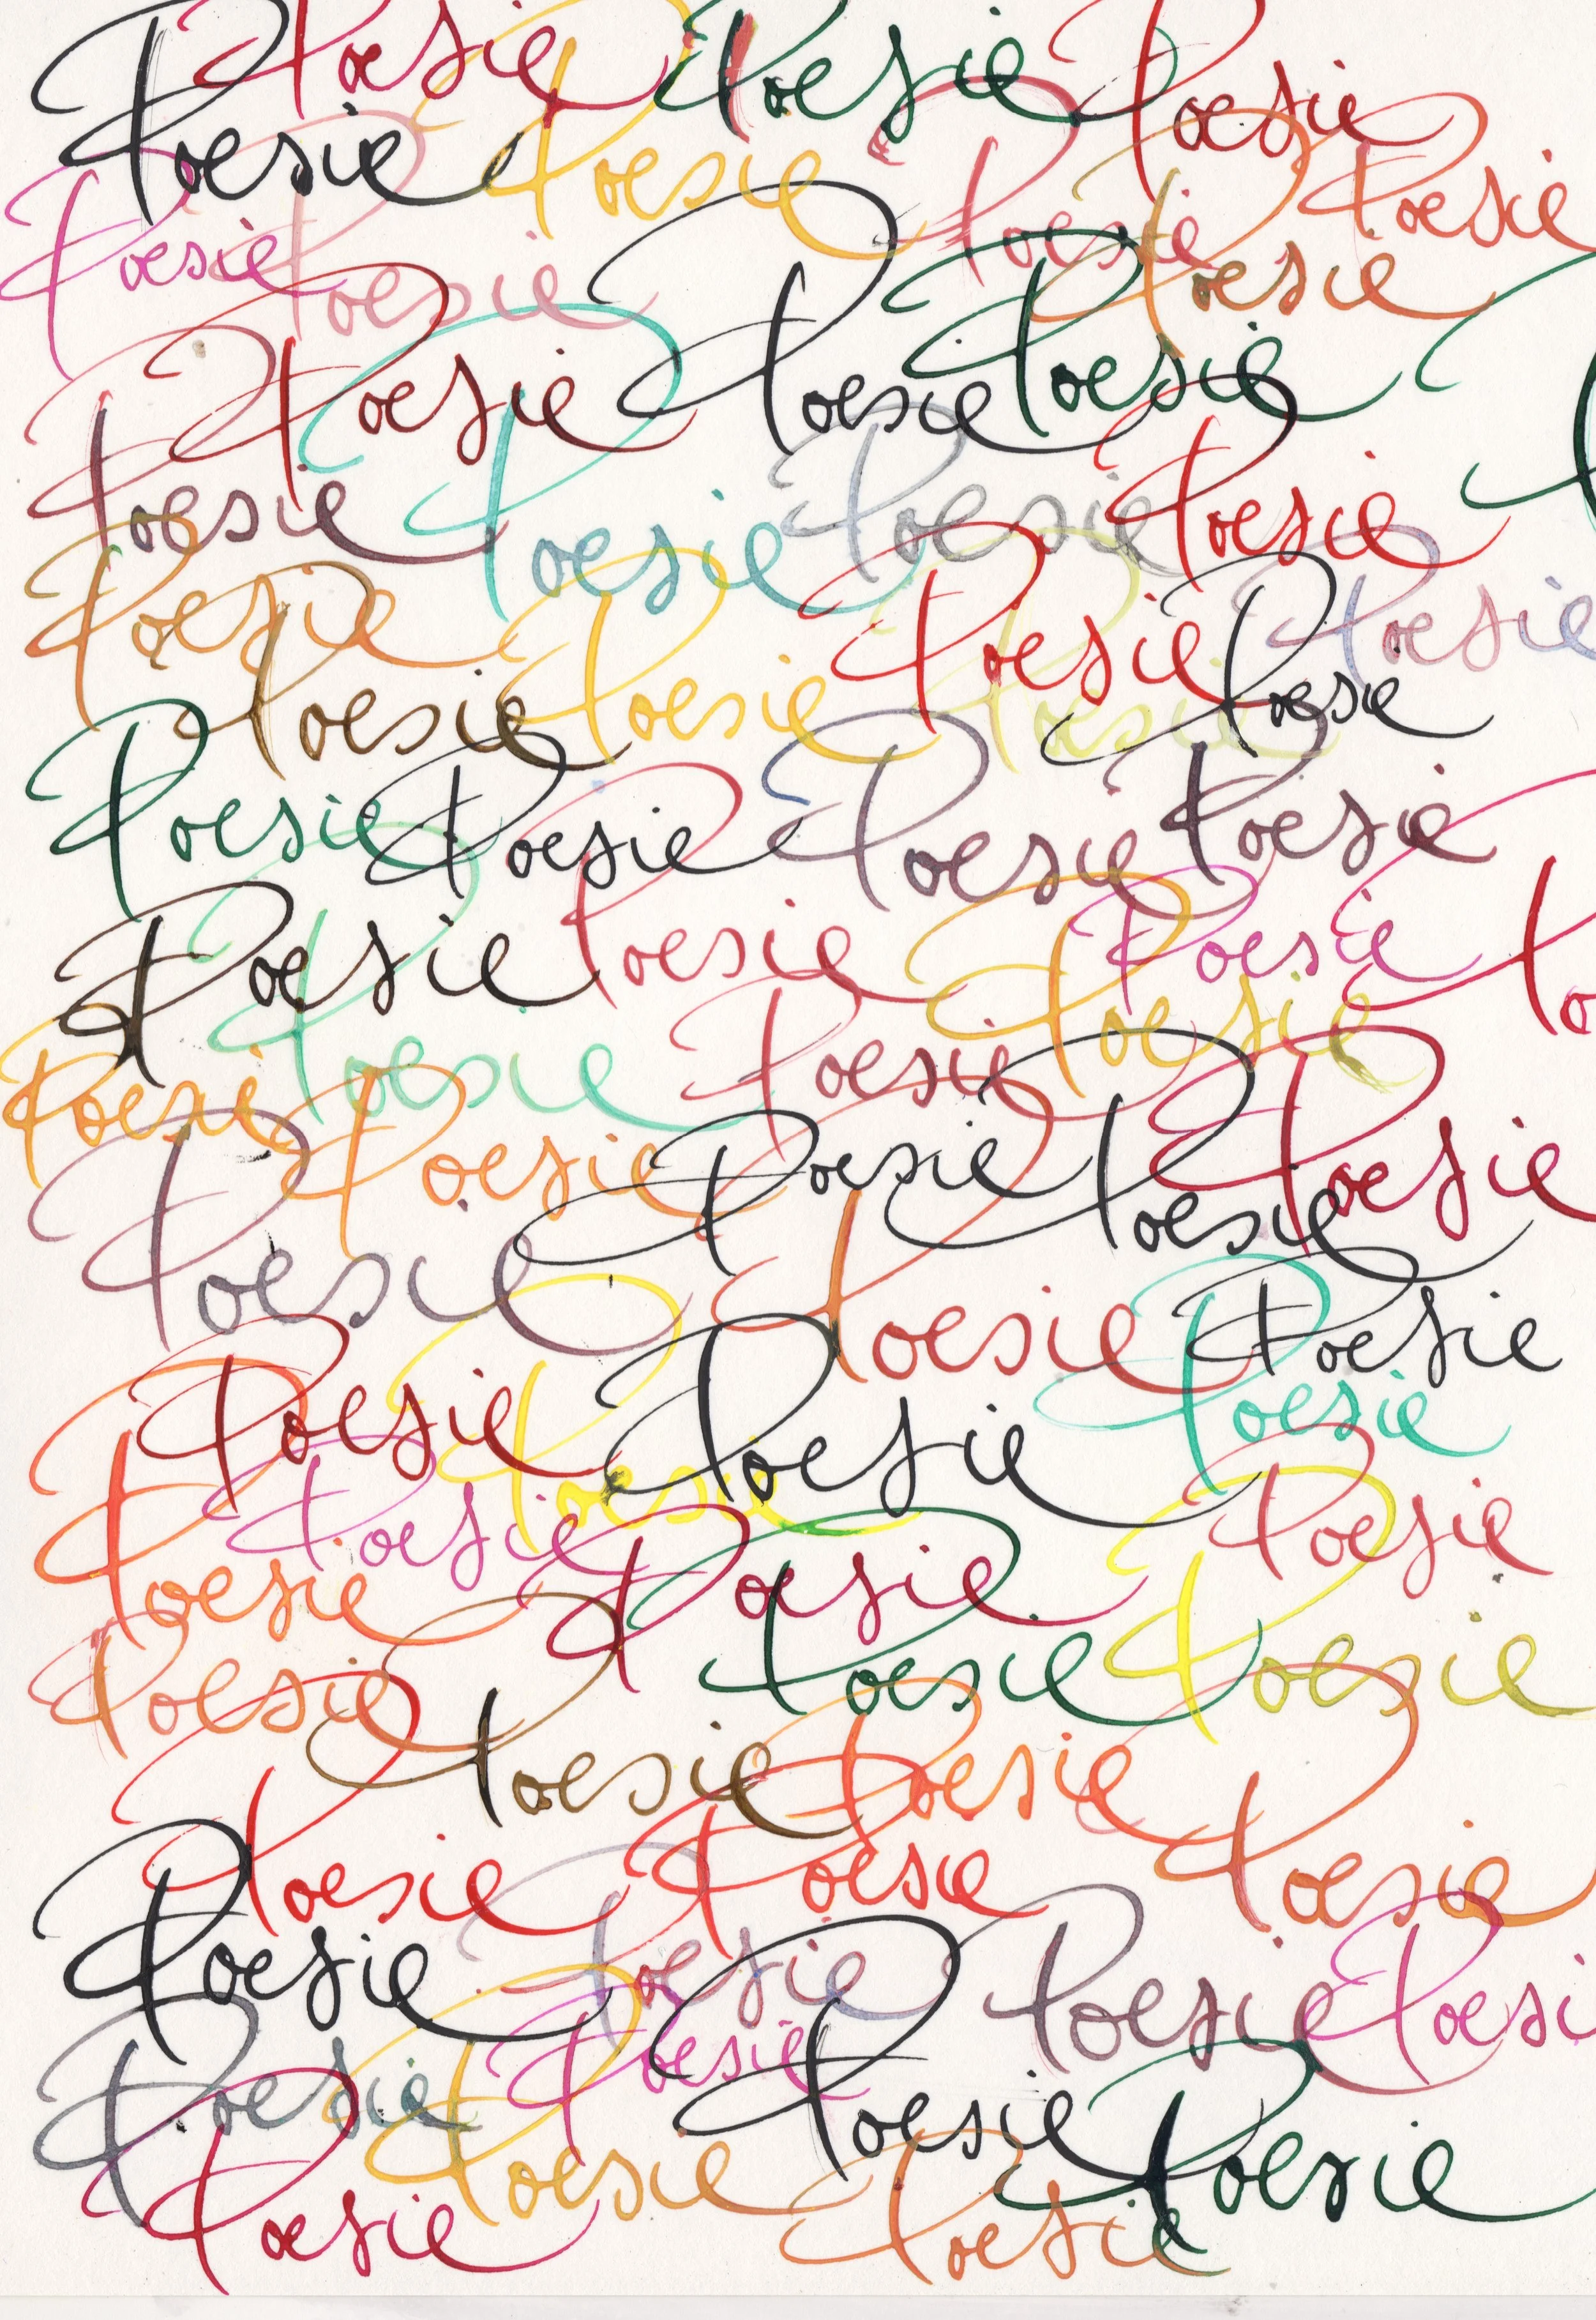 Poesie Poesie Poesie
Poesie Poesie Poesie Poesie
Poesie Poesie Poesie
Poesie Poesie Poesie
Poesie Poesie Poesie Poesie
Poesie Poesie Poesie
Poesie Poesie Poesie Poesie
Poesie Poesie Poesie Poesie
Poesie Poesie Poesie
Poesie Poesie Poesie Po
Poesie Poesie Poesie Poesie Poesie
Poesie Poesie Poesie
Poesie Poesie Poesie Poesie
Poesie Poesie Poesie Poesie
Poesie Poesie Poesie
Poesie Poesie
Poesie Poesie Poesie
Poesie Poesie Poesie Poesi
Poesie Poesie Poesie Poesie
Poesie Poesie Poesie